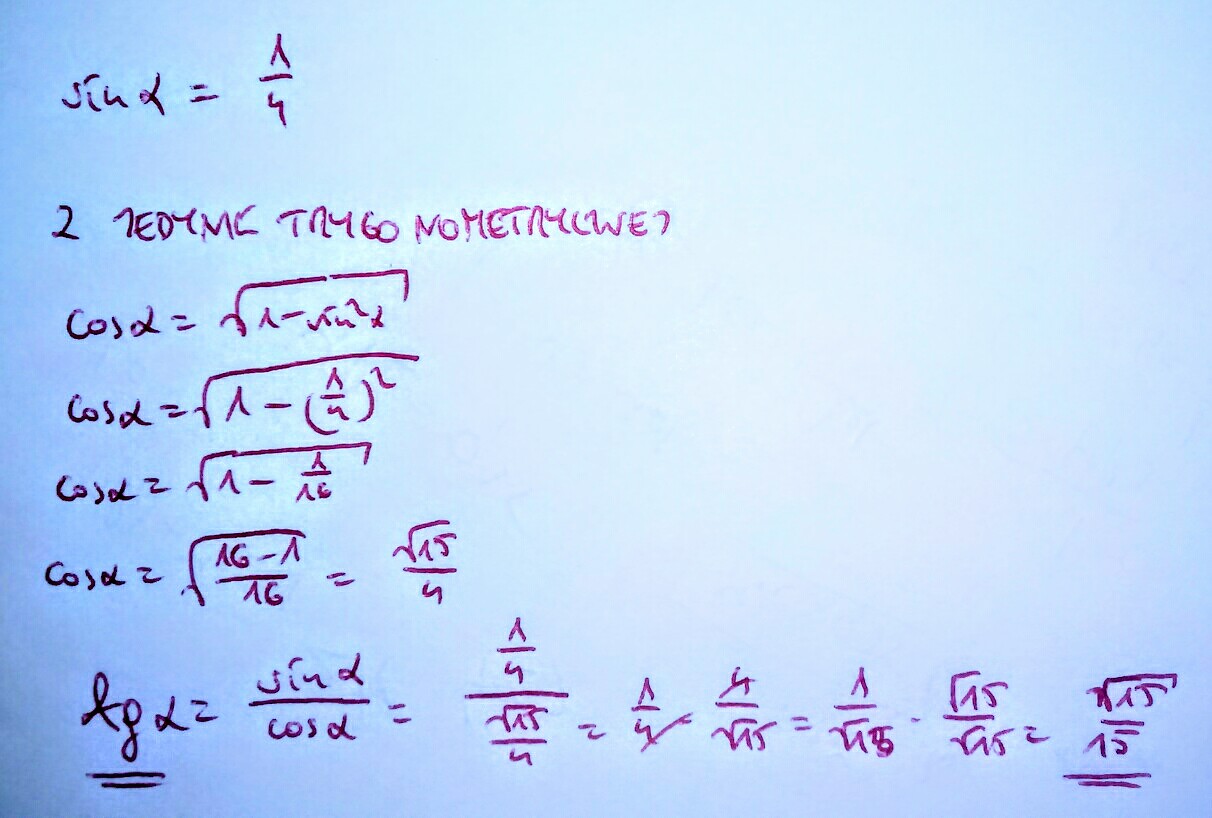 sin α = 1/4
Z JEDYNKI TRYGONOMETRYCZNEJ
cosα = √(1-sin²α)
cosα = √(1 - (1/4)²)
cosα = √(1 - 1/16)
cosα = √((16-1)/16) = √15/4
tg α = sin α/cos α = (1/4)/(√15/4) = 1/4 · 4/√15 = 1/√15 · √15/√15 = √15/15